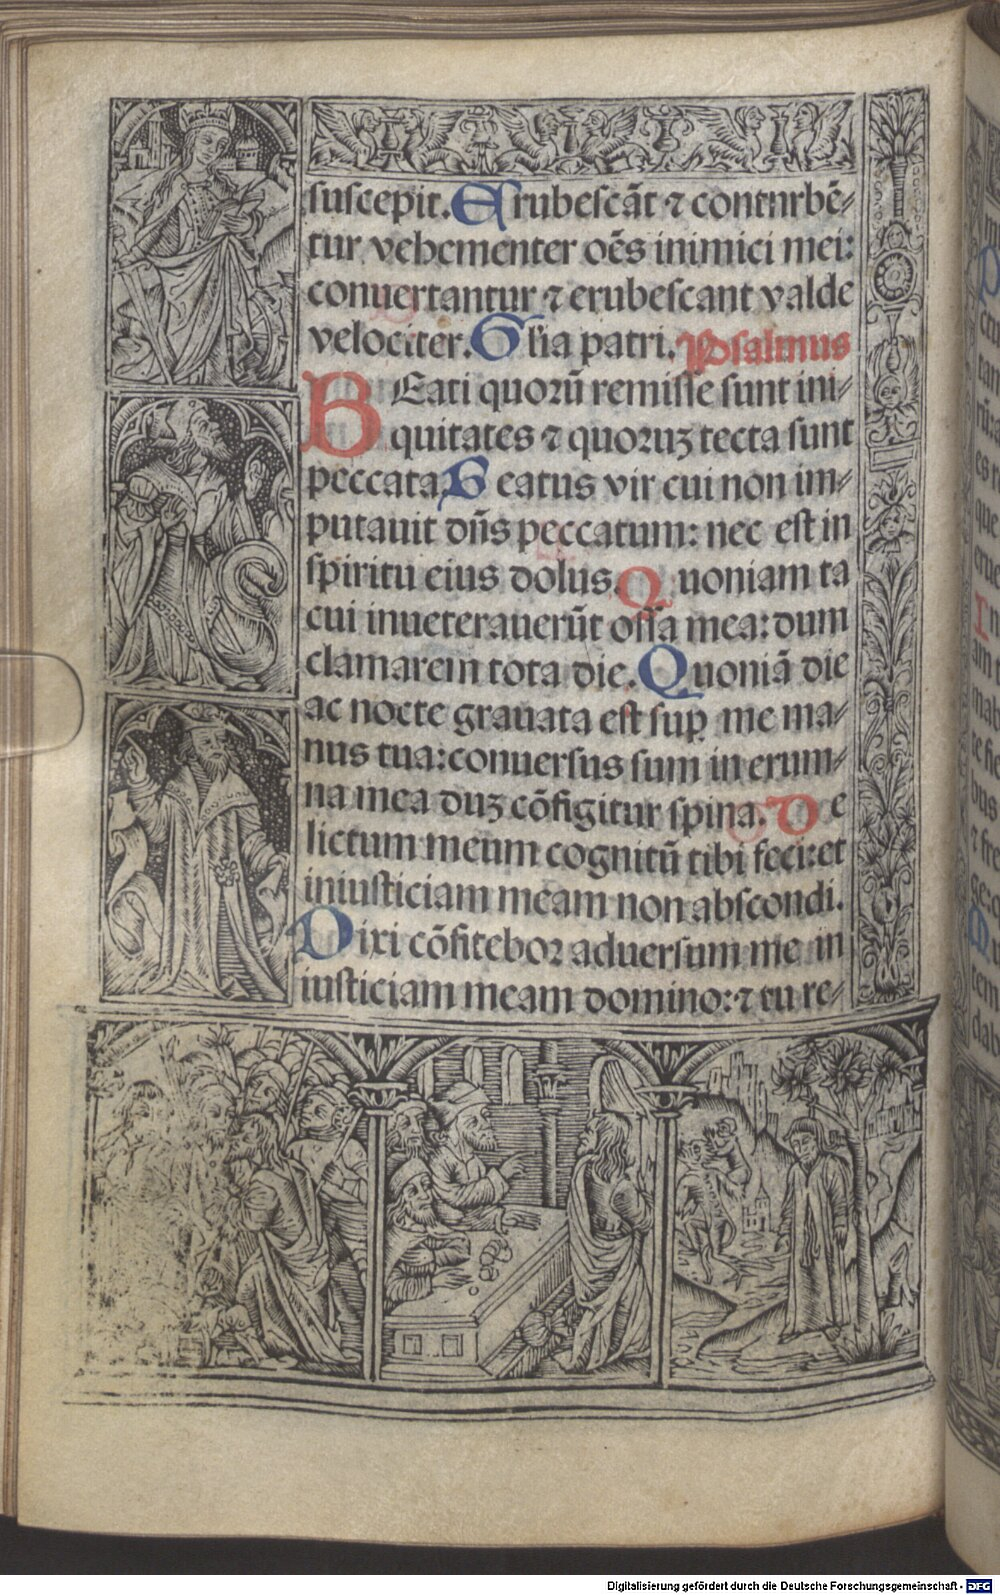 suscepit. Erubescāt ⁊ conturbē⸗
tur vehementer oēs inimici mei:
conuertantur ⁊ erubescant valde
velociter. Glia patri. Psalmus
BEati quorū remisse sunt ini⸗
quitates ⁊ quoruꝫ tecta sunt
peccata. Beatus vir cui non im⸗
putauit dn̄s peccatum: nec est in
spiritu eius dolus. Quoniam ta
cui inueterauerūt ossa mea: dum
clamarem tota die. Quoniā die
ac nocte grauata est suꝑ me ma⸗
nus tua: conuersus sum in erum⸗
na mea duꝫ cōfigitur spina. De
lictum meum cognitū tibi feci: et
iniusticiam meam non abscondi.
Dixi cōfitebor aduersum me in
iusticiam meam domino: ⁊ tu re⸗
Digitalisierung gefördert durch die Deutsche Forschungsgemeinschaft - DFG